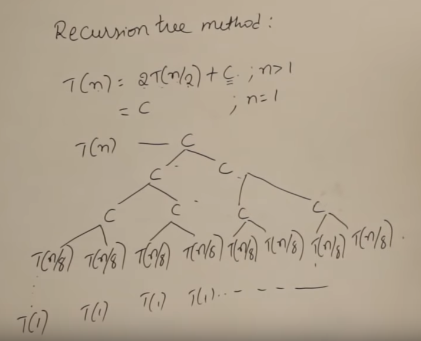 Recursion tree method:
T(n) = 2T(n/2) + C ; n>1
= C ; n=1
T(n) — C
C C
C C C C
T(n/8) T(n/8) T(n/8) T(n/8) T(n/8) T(n/8) T(n/8) T(n/8)
T(1) T(1) T(1) T(1)